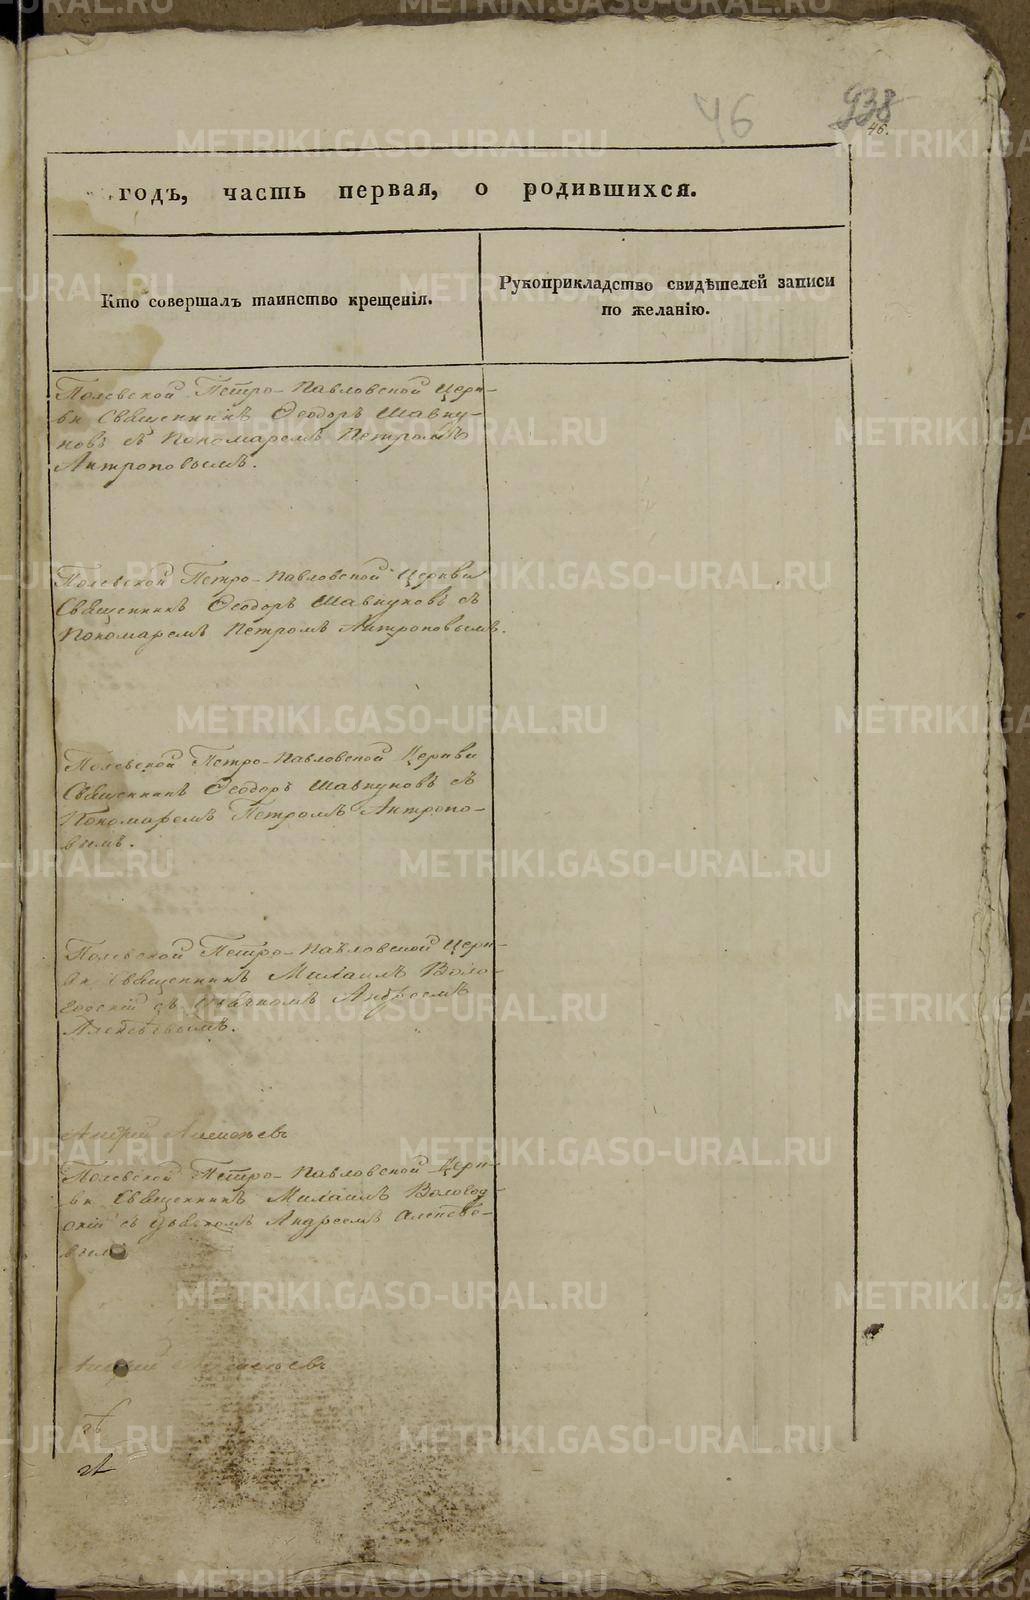 46
938
46.
годъ, часть первая, о родившихся.
Кто совершалъ таинство крещенія.
Рукоприкладство свидѣтелей записи
по желанію.
Полевской Петро-Павловской Церк-
ви Священникъ Ѳеодоръ Шавку-
новъ съ Пономаремъ Петромъ
Антроповымъ.
Полевской Петро-Павловской Церкви
Священникъ Ѳеодоръ Шавкуновъ съ
Пономаремъ Петромъ Антроповымъ.
Полевской Петро-Павловской Церкви
Священникъ Ѳеодоръ Шавкуновъ съ
Пономаремъ Петромъ Антропо-
вымъ.
Полевской Петро-Павловской Церк-
ви Священникъ Михаилъ Воло-
годскій съ Дьячкомъ Андреемъ
Алексѣевымъ.
Андрей
Полевской Петро-Павловской Церк-
ви Священникъ Михаилъ Вологод-
скій съ Дьячкомъ Андреемъ
METRIKI.GASO-URAL.RU